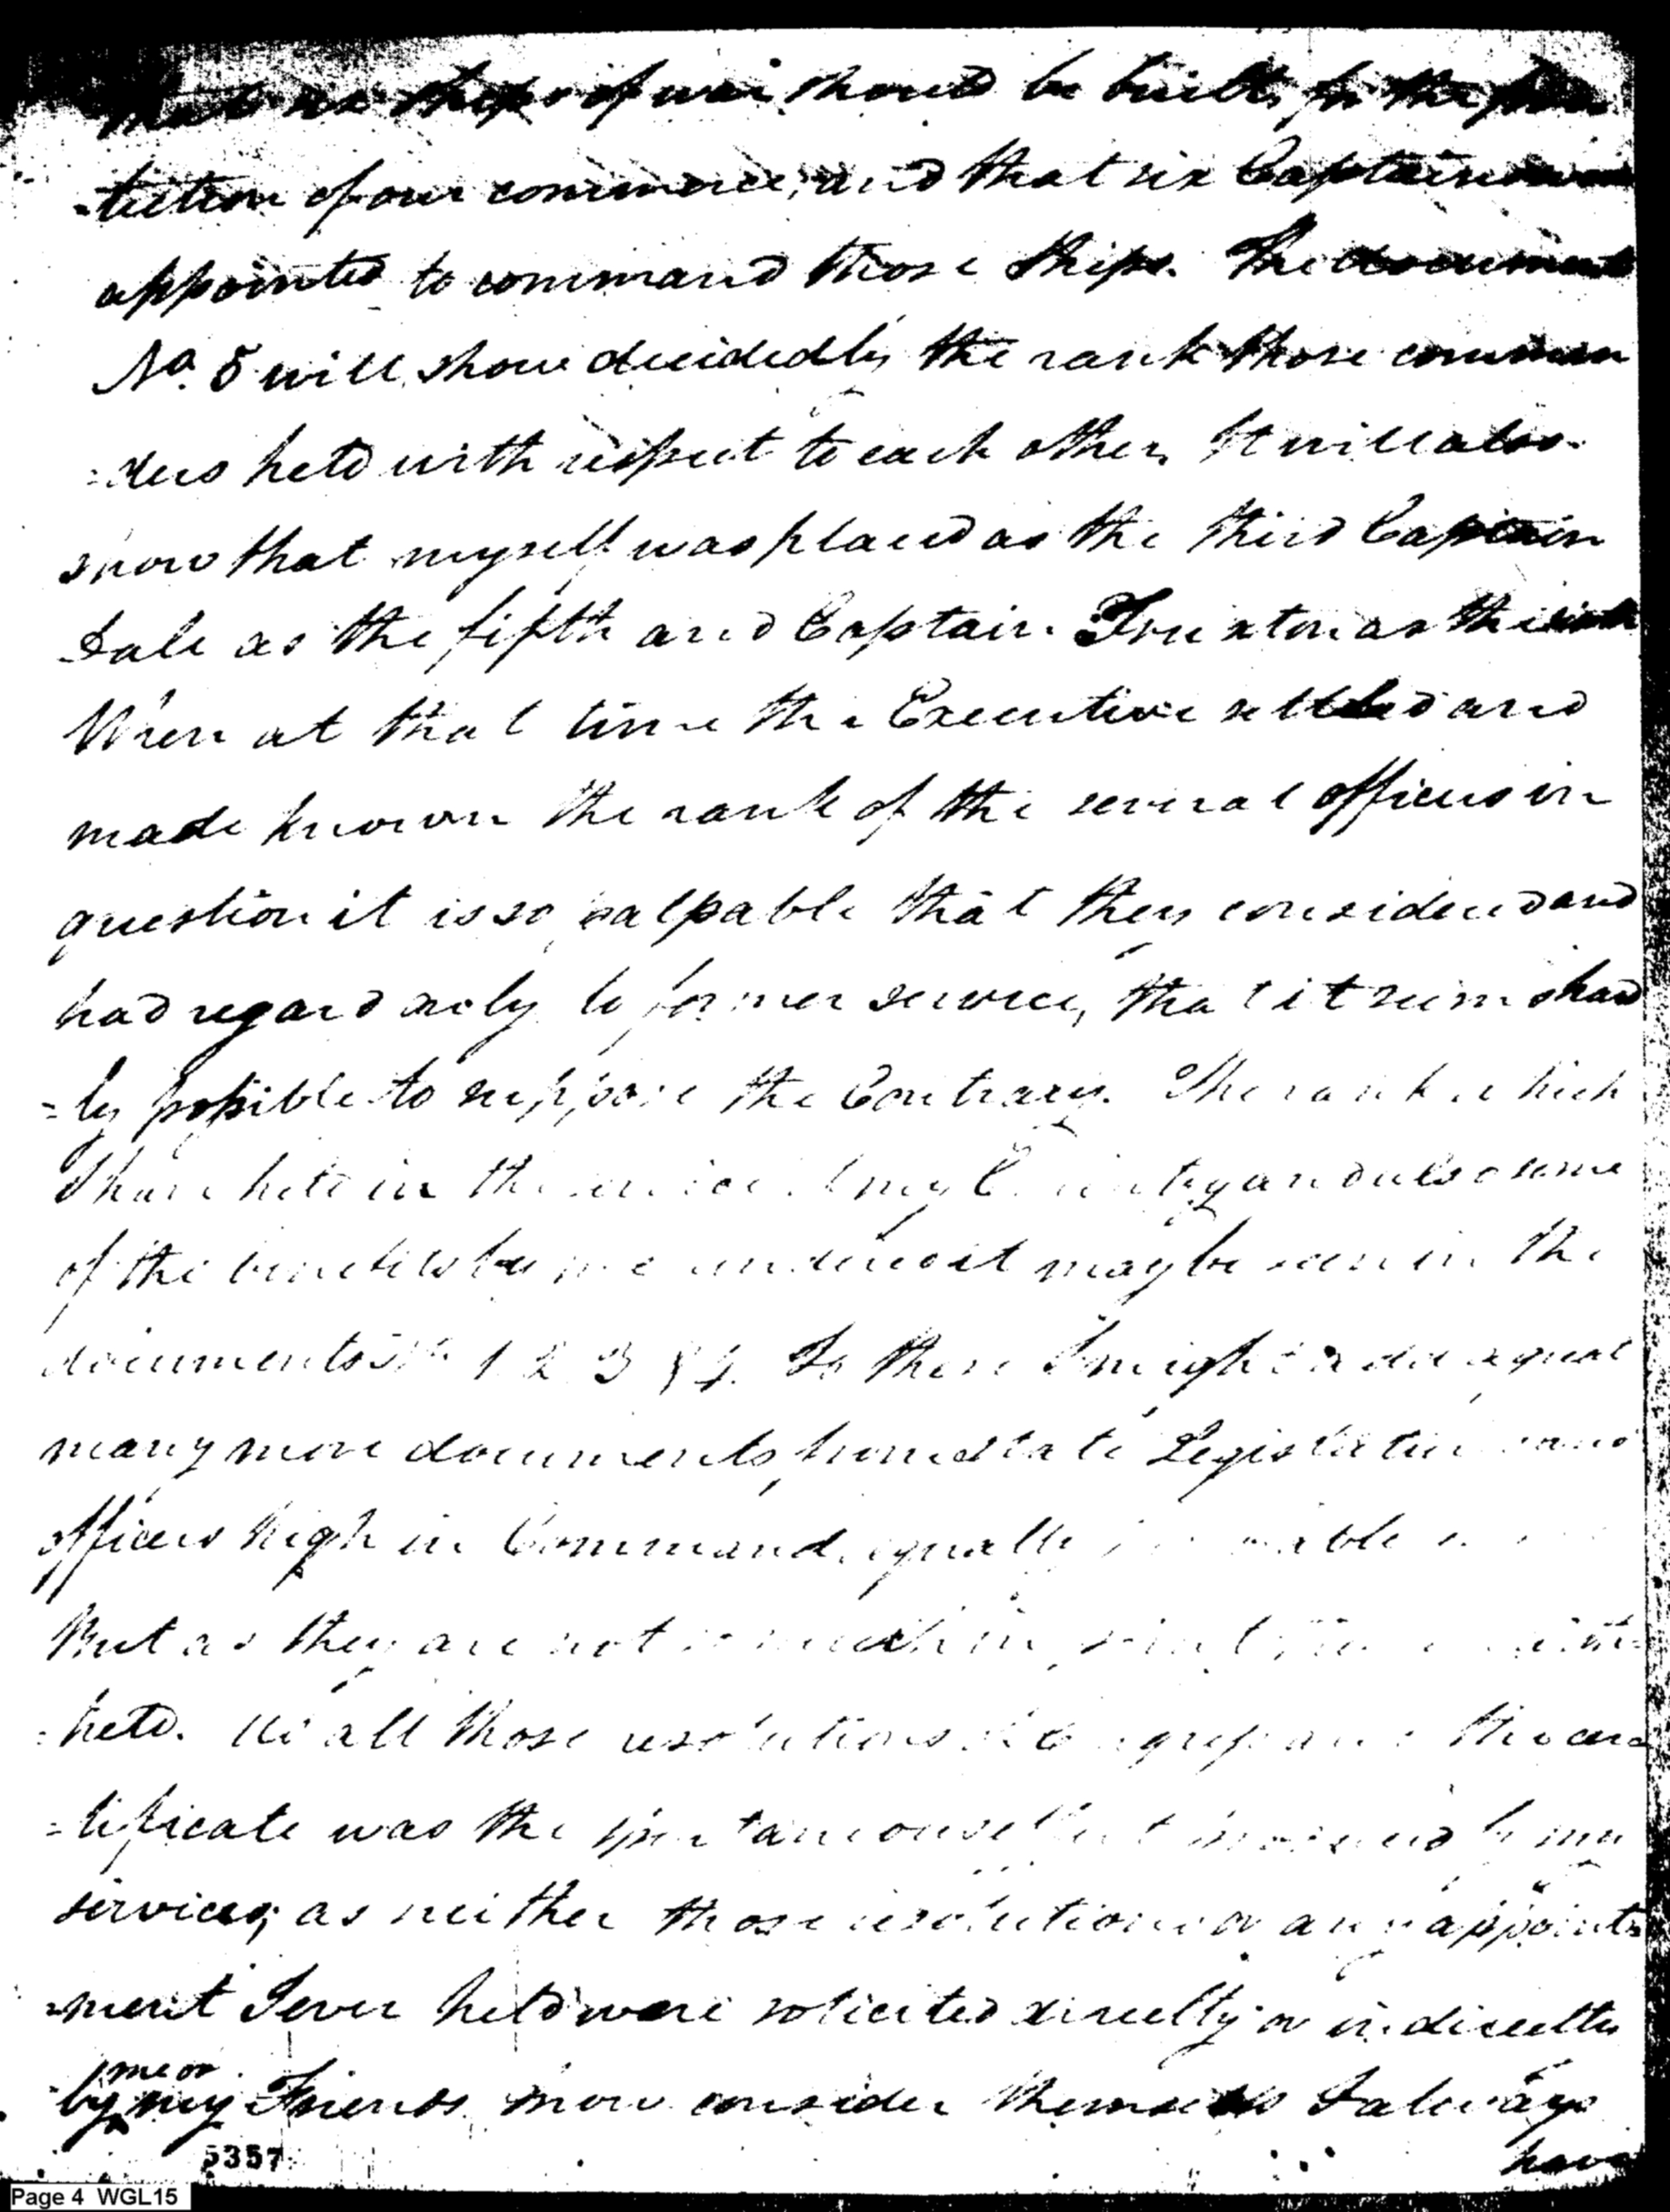 that six ships of war should be built, for the pro
-tection of our commerce, and that six Captains
appointed to command those ships. The document
No. 5 will show decidedly the rank those comman
=ders held with respect to each other, It will also
show that myself was placed as the third Captain
Dale as the fifth and Captain Truxton as the sixth
When at that time the Executive settled and
made known the rank of the several officers in
question it is so palpable that they considered and
had regard only to former service, that it seems hard
=ly possible to suppose the Contrary. The rank which
I have held in the service of my Country and also some
of the may be seen in the
documents 1 2 3 & 4. To these I might add a great
many more documents, from State Legislatures and
officers high in Command, equally
But as they are not so much in point,
=held. As all those resolutions of Congress and the cer
=tificate was the spontaneous effect by my
services; as neither those resolutions or any appoint=
=ment I ever held were solicited directly or indirectly
by me or my Friends now consider themselves I always
have
5357
Page 4 WGL15